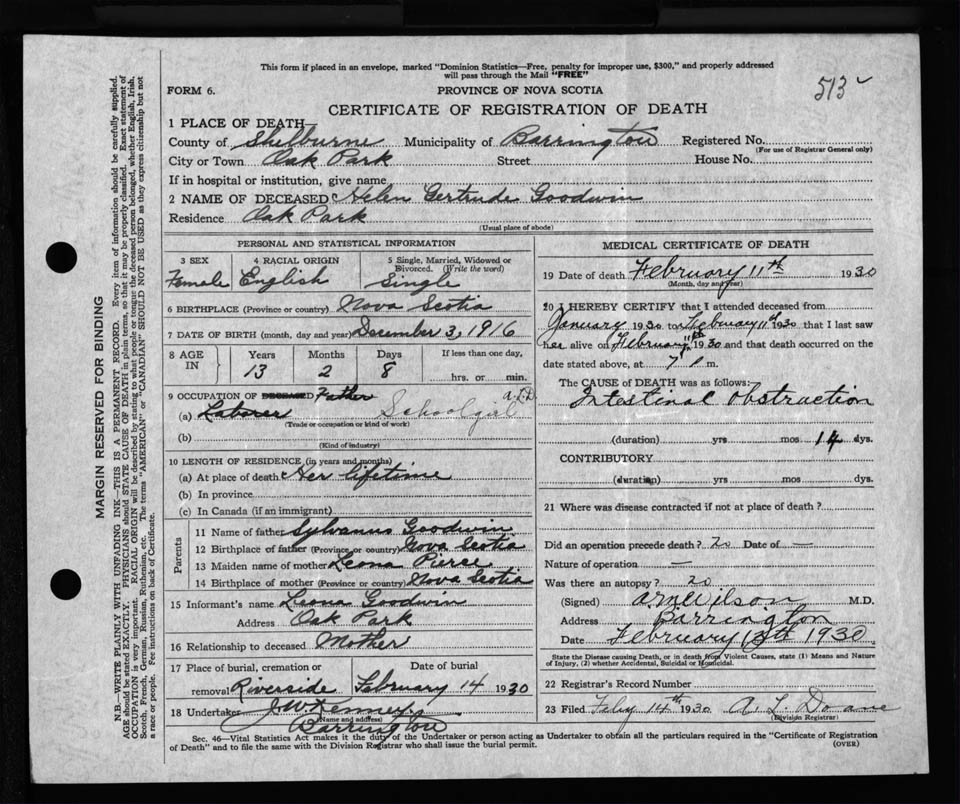 This form if placed in an envelope, marked "Dominion Statistics—Free, penalty for improper use, $300," and properly addressed
will pass through the Mail "FREE"
513
FORM 6. PROVINCE OF NOVA SCOTIA
CERTIFICATE OF REGISTRATION OF DEATH
1 PLACE OF DEATH—
County of Shelburne Municipality of Barrington Registered No.
(For use of Registrar General only)
City or Town Oak Park Street House No.
If in hospital or institution, give name
2 NAME OF DECEASED Helen Gertrude Goodwin
Residence Oak Park
(Usual place of abode)
PERSONAL AND STATISTICAL INFORMATION
3 SEX 4 RACIAL ORIGIN 5 Single, Married, Widowed or
Divorced. (Write the word)
Female English Single
6 BIRTHPLACE (Province or country) Nova Scotia
7 DATE OF BIRTH (month, day and year) December 3, 1916
8 AGE IN Years Months Days If less than one day,
13 2 8 hrs. or min.
9 OCCUPATION OF DECEASED Father A.L.D.
(a) Laborer Schoolgirl
(Trade or occupation or kind of work)
(b)
(Kind of industry)
10 LENGTH OF RESIDENCE (in years and months)
(a) At place of death Her lifetime
(b) In province
(c) In Canada (if an immigrant)
Parents
11 Name of father Sylvanus Goodwin
12 Birthplace of father (Province or country) Nova Scotia
13 Maiden name of mother Leona Pierce
14 Birthplace of mother (Province or country) Nova Scotia
15 Informant's name Leona Goodwin
Address Oak Park
16 Relationship to deceased Mother
17 Place of burial, cremation or Date of burial
removal Riverside February 14 1930
18 Undertaker
(Name and address)
Barrington
MEDICAL CERTIFICATE OF DEATH
19 Date of death February 11th 1930
(Month, day and year)
20 I HEREBY CERTIFY that I attended deceased from
January 1930 to February 11th 1930 that I last saw
her alive on February 11th 1930 and that death occurred on the
date stated above, at 7 P m.
The CAUSE OF DEATH was as follows:
Intestinal Obstraction
(duration) yrs mos 14 dys.
CONTRIBUTORY
(duration) yrs mos dys.
21 Where was disease contracted if not at place of death?
Did an operation precede death? no Date of —
Nature of operation —
Was there an autopsy? no
(Signed) Wilson M.D.
Address Barrington
Date February 1930
State the Disease causing Death, or in death from Violent Causes, state (1) Means and Nature
of Injury, (2) whether Accidental, Suicidal or Homicidal.
22 Registrar's Record Number
23 Filed Feby 14th 1930 A. L. Doane
(Division Registrar)
Sec. 46—Vital Statistics Act makes it the duty of the Undertaker or person acting as Undertaker to obtain all the particulars required in the "Certificate of Registration
of Death" and to file the same with the Division Registrar who shall issue the burial permit. (OVER)
MARGIN RESERVED FOR BINDING
N.B.—WRITE PLAINLY WITH UNFADING INK—THIS IS A PERMANENT RECORD. Every item of information should be carefully supplied.
AGE should be stated EXACTLY. PHYSICIANS should STATE CAUSE OF DEATH in plain terms, so that it may be properly classified. Exact statement of
OCCUPATION is very important. RACIAL ORIGIN will be described by stating to what people or tongue the deceased person belonged, whether English, Irish,
Scotch, French, German, Russian, Ruthenian, etc. The terms "AMERICAN" or "CANADIAN" SHOULD NOT BE USED as they express citizenship but not
a race or people. Fee instructions on back of Certificate.